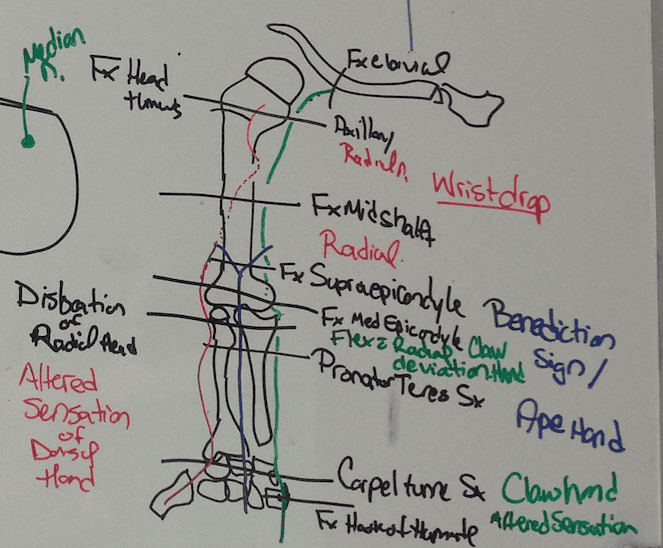 Median
n.
Fx Head
Humerus
Fx Clavical
Axillary
Radial n.
Wrist drop
Fx Midshaft
Radial.
Fx Supraepicondyle
Benediction
Sign/
Ape Hand
Fx Med Epicondyle
Flex = Radial Claw
deviation Hand
Pronator Teres Sx
Dislocation
of
Radial Head
Altered
Sensation
of
Dorsal
Hand
Carpel tunne Sx
Claw hand
Altered Sensation
Fx Hook of Hamate